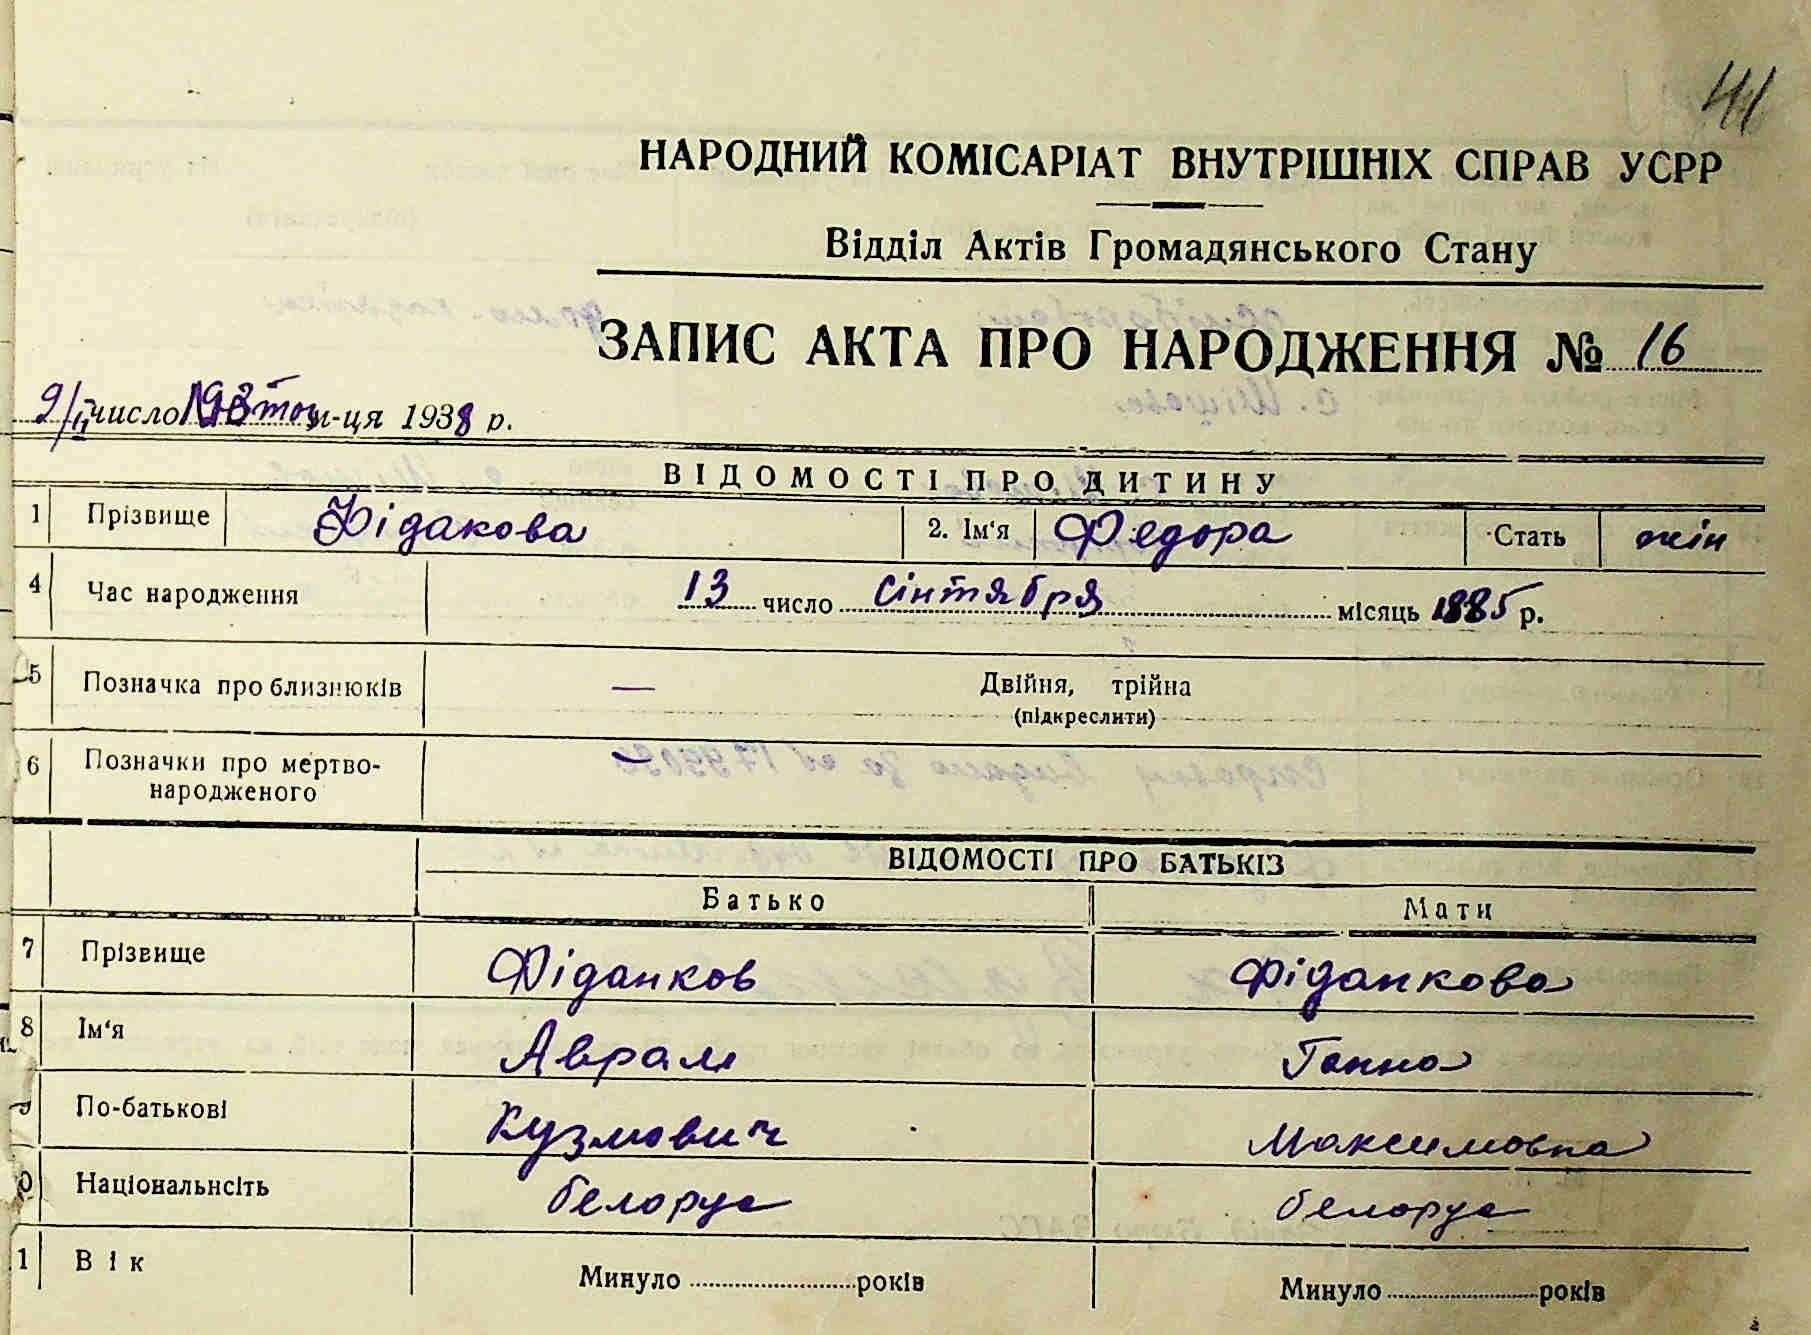 41
НАРОДНИЙ КОМІСАРІАТ ВНУТРІШНІХ СПРАВ УСРР
Відділ Актів Громадянського Стану
ЗАПИС АКТА ПРО НАРОДЖЕННЯ № 16
9/ІІ число м-ця 1938 р.
ВІДОМОСТІ ПРО ДИТИНУ
1 Прізвище Фідакова 2. Ім‘я Федора Стать жін
4 Час народження 13 число сінтября місяць 1885 р.
5 Позначка про близнюків — Двійня, трійна
(підкреслити)
6 Позначки про мертво-
народженого
ВІДОМОСТІ ПРО БАТЬКІЗ
Батько Мати
7 Прізвище Фіданков Фіданкова
8 Ім‘я Аврам Ганна
9 По-батькові Кузмович Максимовна
0 Національнсіть белорус белорус
1 Вік Минуло років Минуло років